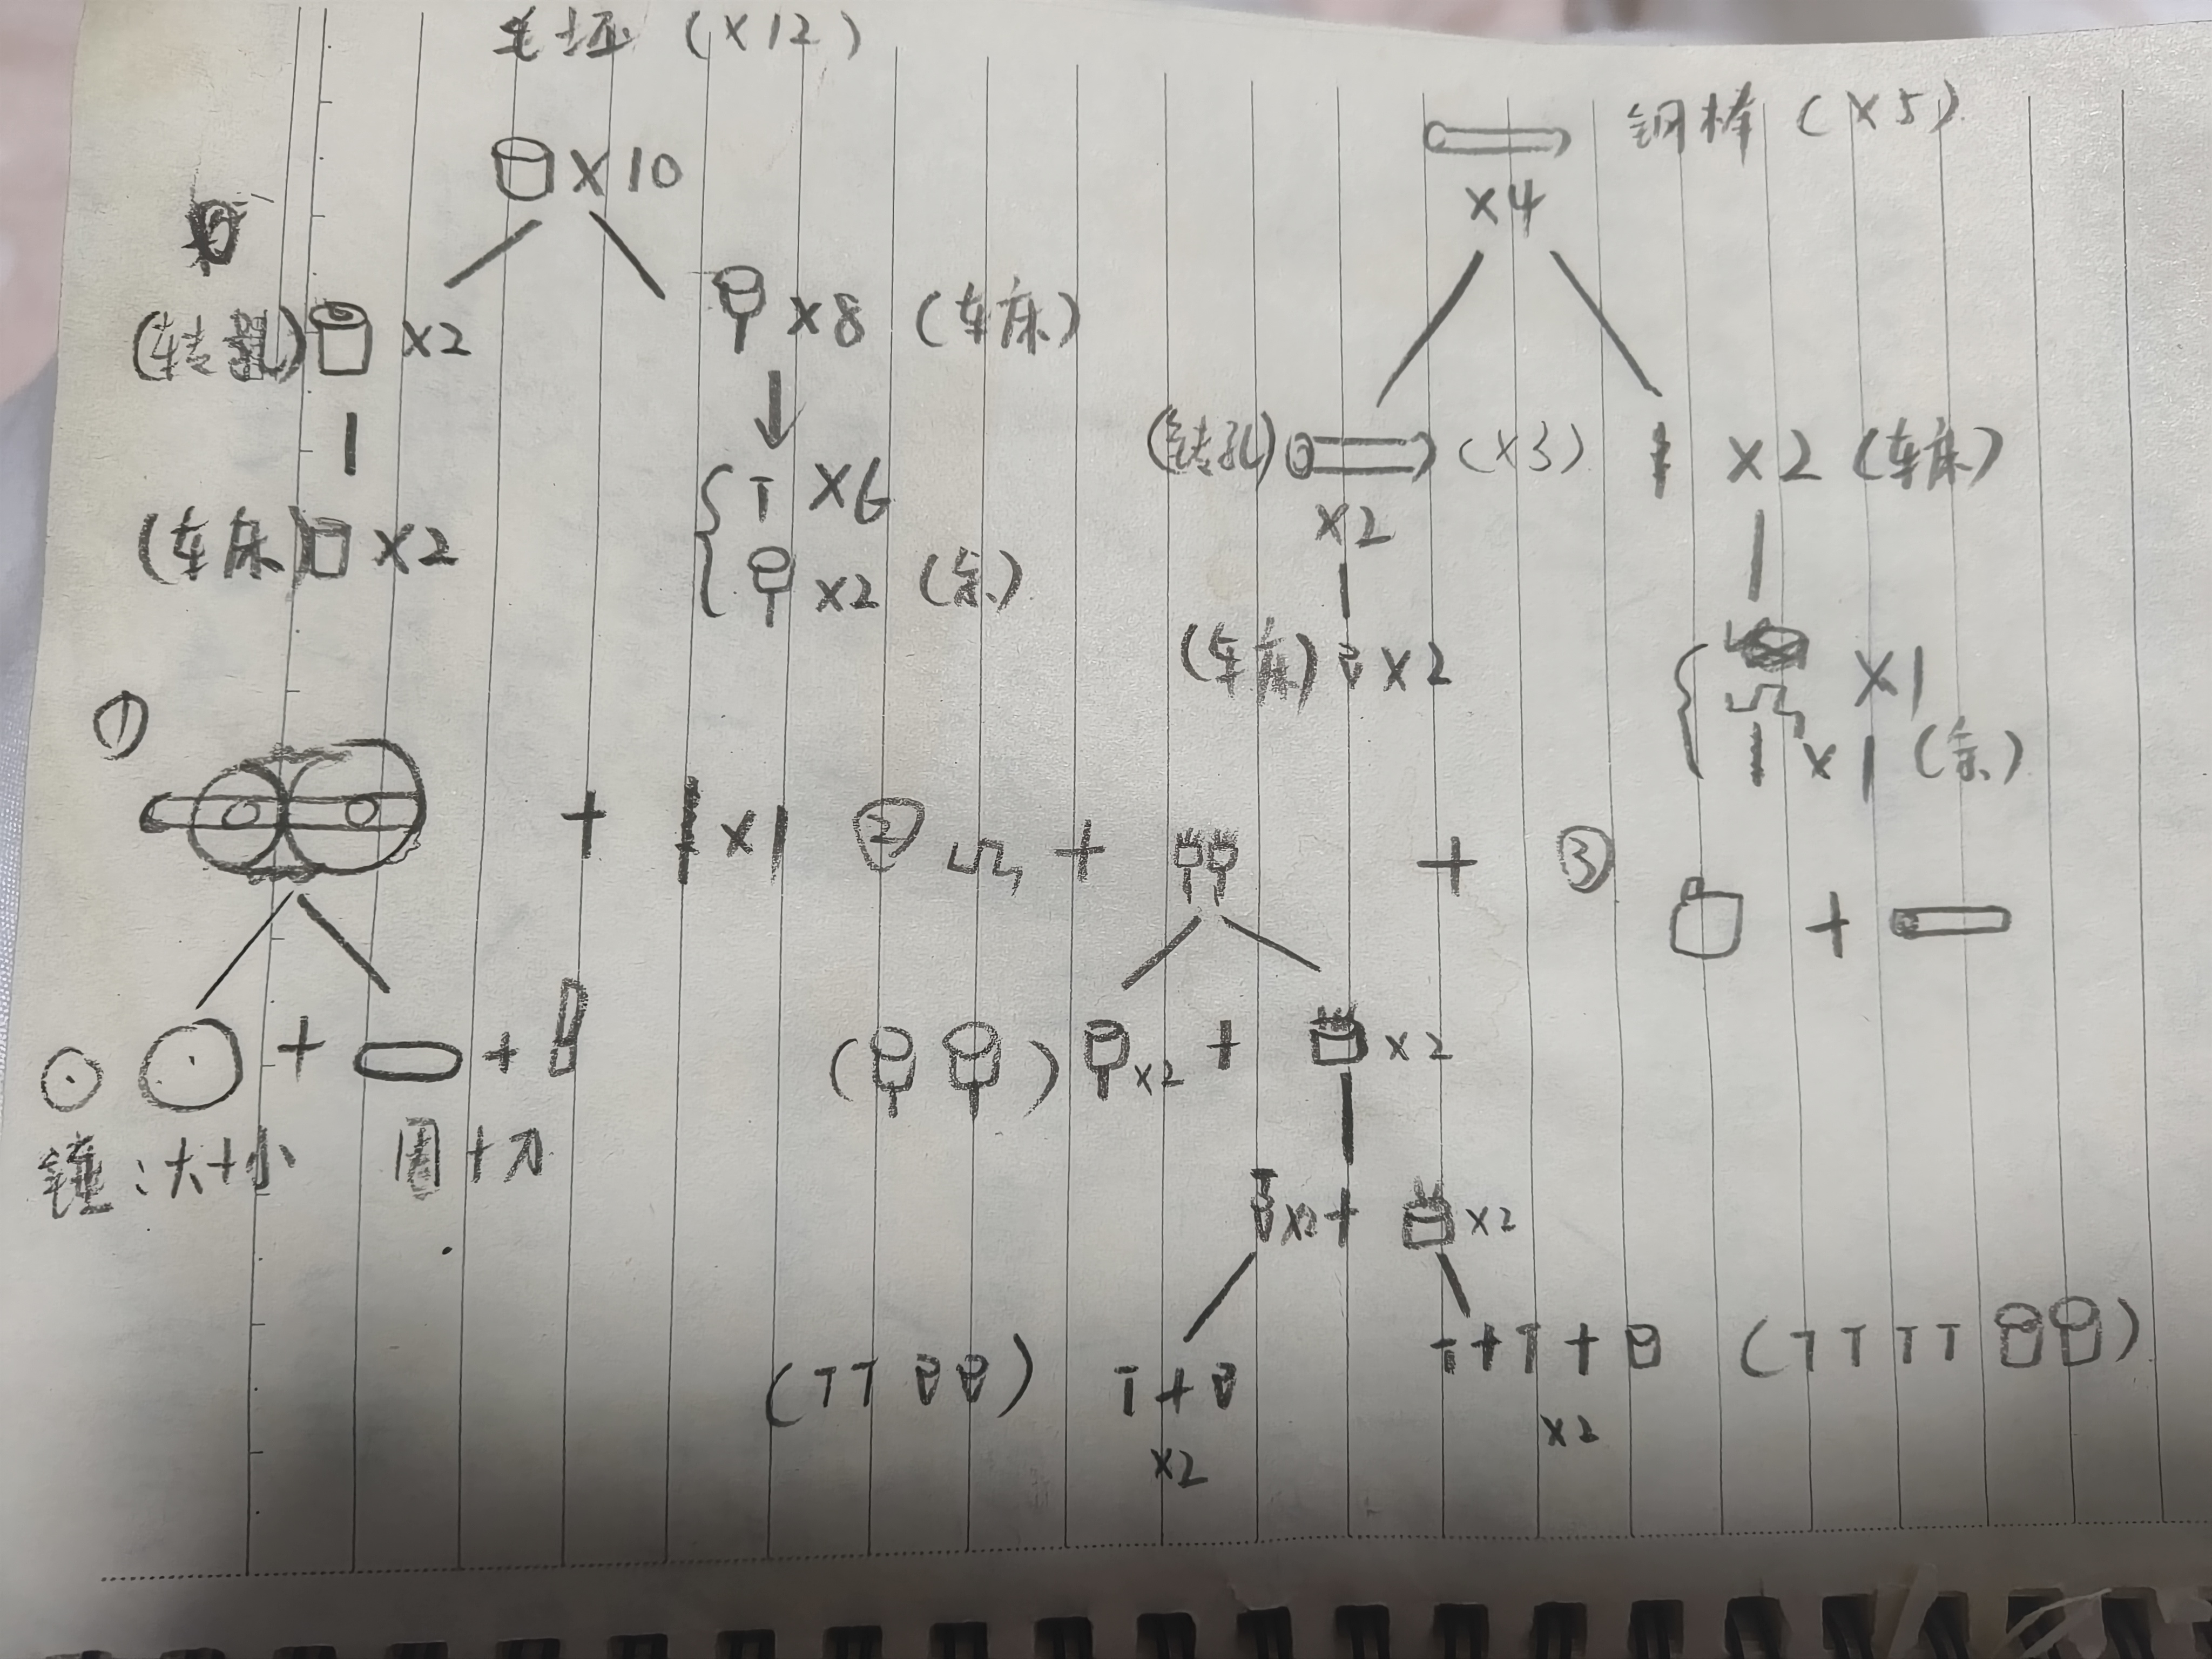 毛坯 (×12)
钢棒 (×5)
×10
×4
(转孔) ×2
×8 (车床)
(钻孔) (×3)
×2
×2 (车床)
T ×6
(车床) ×2
×2 (余)
(车床) ×2
×1
×1 (余)
①
+ ×1
② +
+ ③
+
+ +
×2 + ×2
锤:大+小
周+刀
×2 + ×2
(TT ) T+
×2
T+T+ (TTTT )
×2